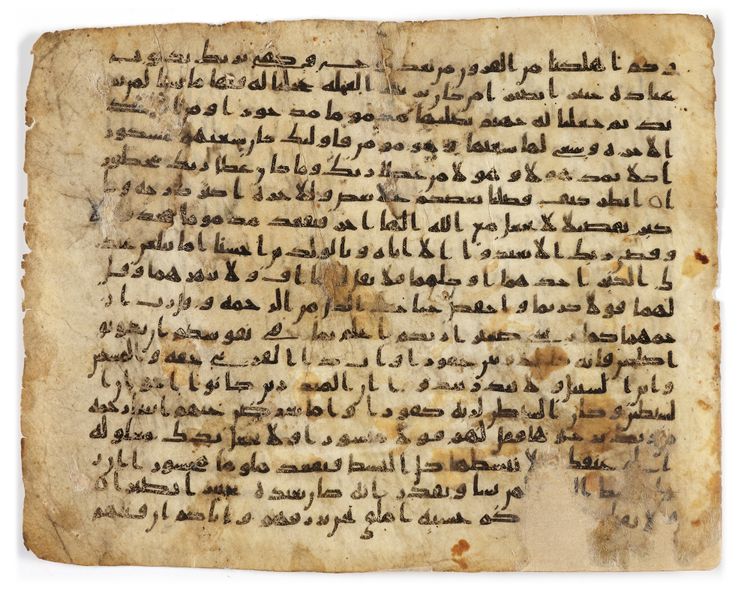 وكم اهلكنا من القرون من بعد نوح وكفى بربك بذنوب
عباده خبيرا بصيرا من كان يريد العجله عجلنا له فيها ما نشا لمن نر
يد ثم جعلنا له جهنم يصليها مذموما مدحورا ومن اراد
الاخره وسعى لها سعيها وهو مومن فاوليك كان سعيهم مشكورا
كلا نمد هولا وهولا من عطا ربك وما كان عطا ربك محظور
ا انظر كيف فضلنا بعضهم على بعض وللاخره اكبر درجت وا
كبر تفضيلا لا تجعل مع الله الها اخر فتقعد مذموما مخذولا
وقضى ربك الا تعبدوا الا اياه وبالولدين احسنا اما يبلغن عند
ك الكبر احدهما او كلهما فلا تقل لهما اف ولا تنهرهما وقل
لهما قولا كريما واخفض لهما جناح الذل من الرحمه وقل رب ار
حمهما كما ربيني صغيرا ربكم اعلم بما في نفوسكم ان تكونو
ا صلحين فانه كان للاوبين غفورا وات ذا القربى حقه والمسكين
وابن السبيل ولا تبذر تبذيرا ان المبذرين كانوا اخون ا
لشيطين وكان الشيطن لربه كفورا واما تعرضن عنهم ابتغا رحمه
من ربك ترجوها فقل لهم قولا ميسورا ولا تجعل يدك مغلوله
الى عنقك ولا تبسطها كل البسط فتقعد ملوما محسورا ان ر
بك يبسط لمن يشا ويقدر انه كان بعباده خبيرا بصيرا
ولا كم خشيه املق نحن نرزقهم واياكم ان قتلهم